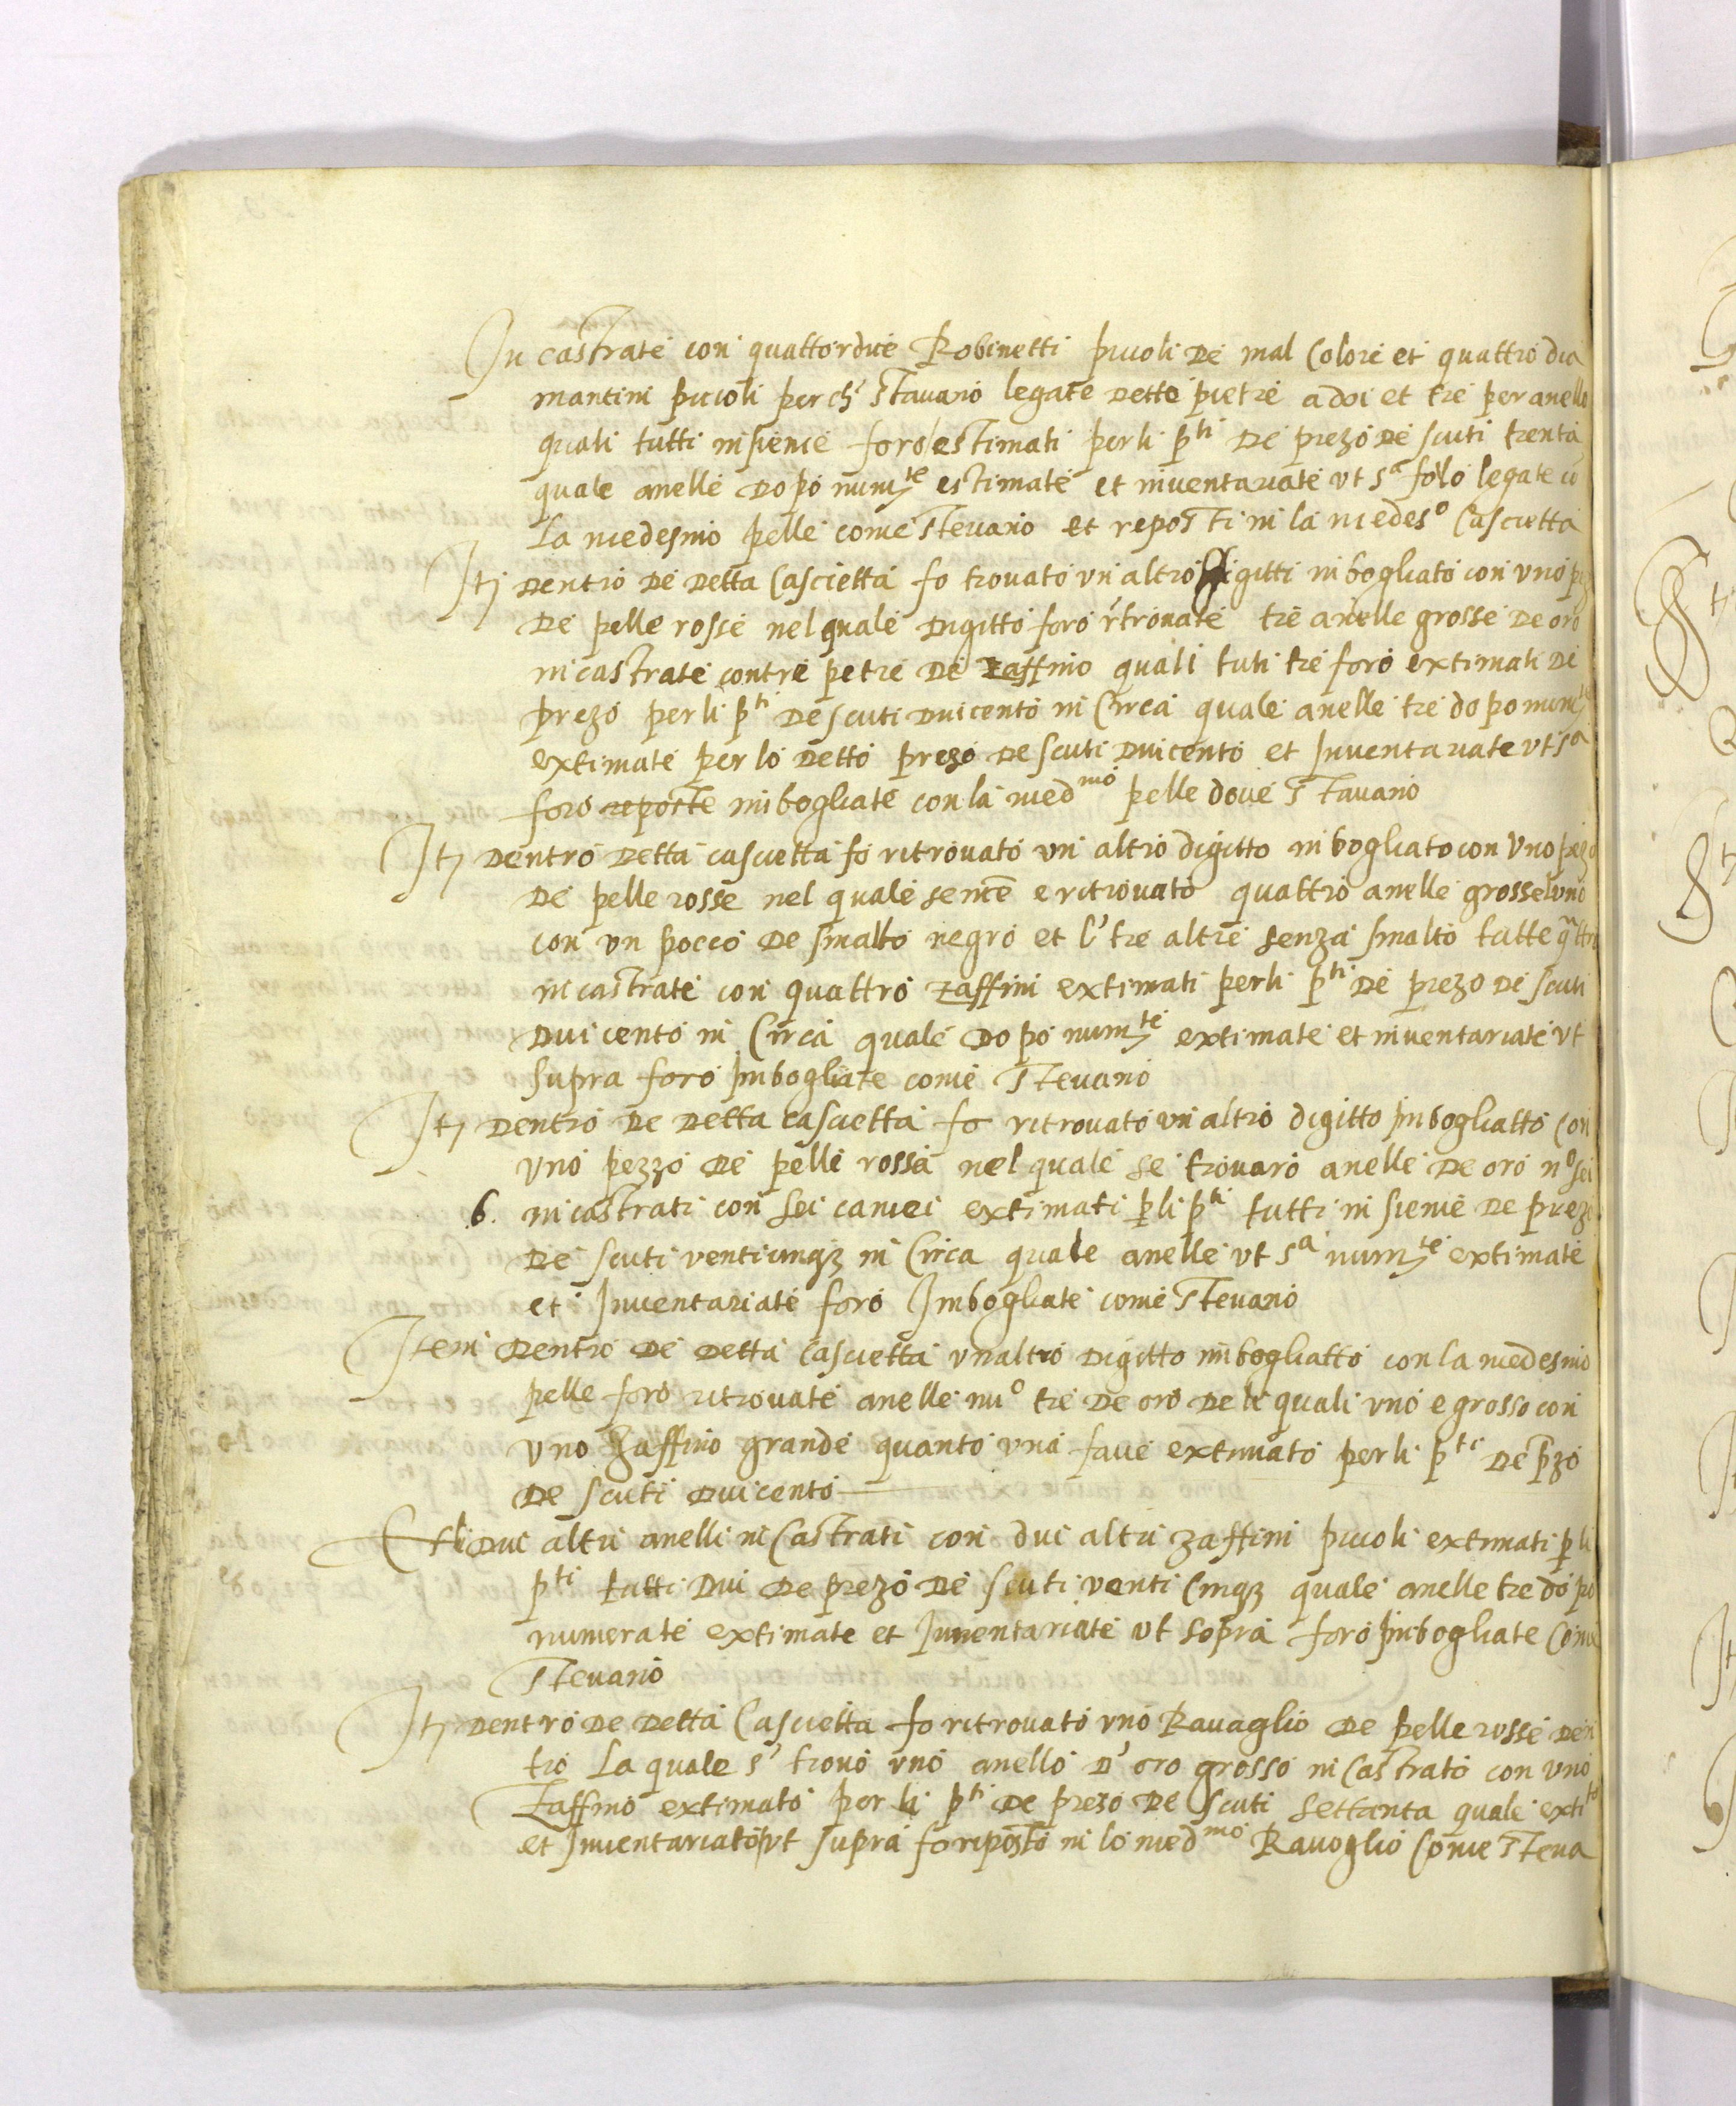 In castrate con quattordice Robinetti piccoli de mal Colore et quattro dia
mantini piccoli perch' stavano legate dette pietre a doi et tre per anello
quali tutti insieme foro estimati per li p.ti de prezo de scuti trenta
quale anelle dopo num.te estimate et inventariate ut s.a folo legate cō
La medesmo pelle come stevano et reposti in la medes.o Cascietta
Itj dentro de detta Cascietta fo trovato un altro digitti imbogliato con uno
de pelle rosse nel quale digitto foro r'trovate tre anelle grosse de oro
incastrate con tre petre de zaffino quali tuti tre foro extimati de
prezo per li p.ti de scuti duicento in Circa quale anelle tre dopo num.te
extimate per lo detto prezo de scuti duicento et Inventariate ut s.a
foro reposte imbogliate con la med.mo pelle dove stavano
Itj dentro detta cascietta fo ritrovato un altro digitto imbogliato con uno pezo
de pelle rosse nel quale sence e ritrovato quattro anelle grosse l'uno
con un pocco de smalto negro et l' tre altre senza smalto tutte q̄ttro
incastrate con quattro zaffini extimati per li p.ti de prezo de scuti
duicento in Circa quale dopo num.te extimate et inventariate ut
supra foro imbogliate come stevano
Itj dentro de detta cascietta fo ritrovato un altro digitto imbogliatto con
uno pezzo de pelle rossa nel quale se trovaro anelle de oro n.o sei
6. incastrati con sei camei extimati p li p.ti tutti insieme de prezo
de scuti venticinqz in Circa quale anelle ut s.a num.te extimate
et Inventariate foro Imbogliate come stevano
Item dentro de detta Cascietta un altro digitto imbogliatto con la medesmo
pelle foro ritrovate anelle nu.o tre de oro de le quali uno e grosso con
uno zaffino grande quanto una fave extimato per li p.ti de p̄zo
de scuti duicento
Et li dui altri anelli in Castrati con dui altri zaffini piccoli extimati p li
p.ti tutti dui de prezo de scuti venti Cinqz quale anelle tre dopo
numerate extimate et Inventariate ut sopra foro imbogliate Come
stevano
Itj dentro de detta Cascietta fo ritrovato uno Ravaglio de pelle rosse den
tro La quale s' trovo uno anello d' oro grosso in Castrato con uno
Zaffino extimato per li p.ti de prezo de scuti settanta quale exti.to
et Inventariato ut supra fo riposto in lo med.mo Ravoglio Come steva